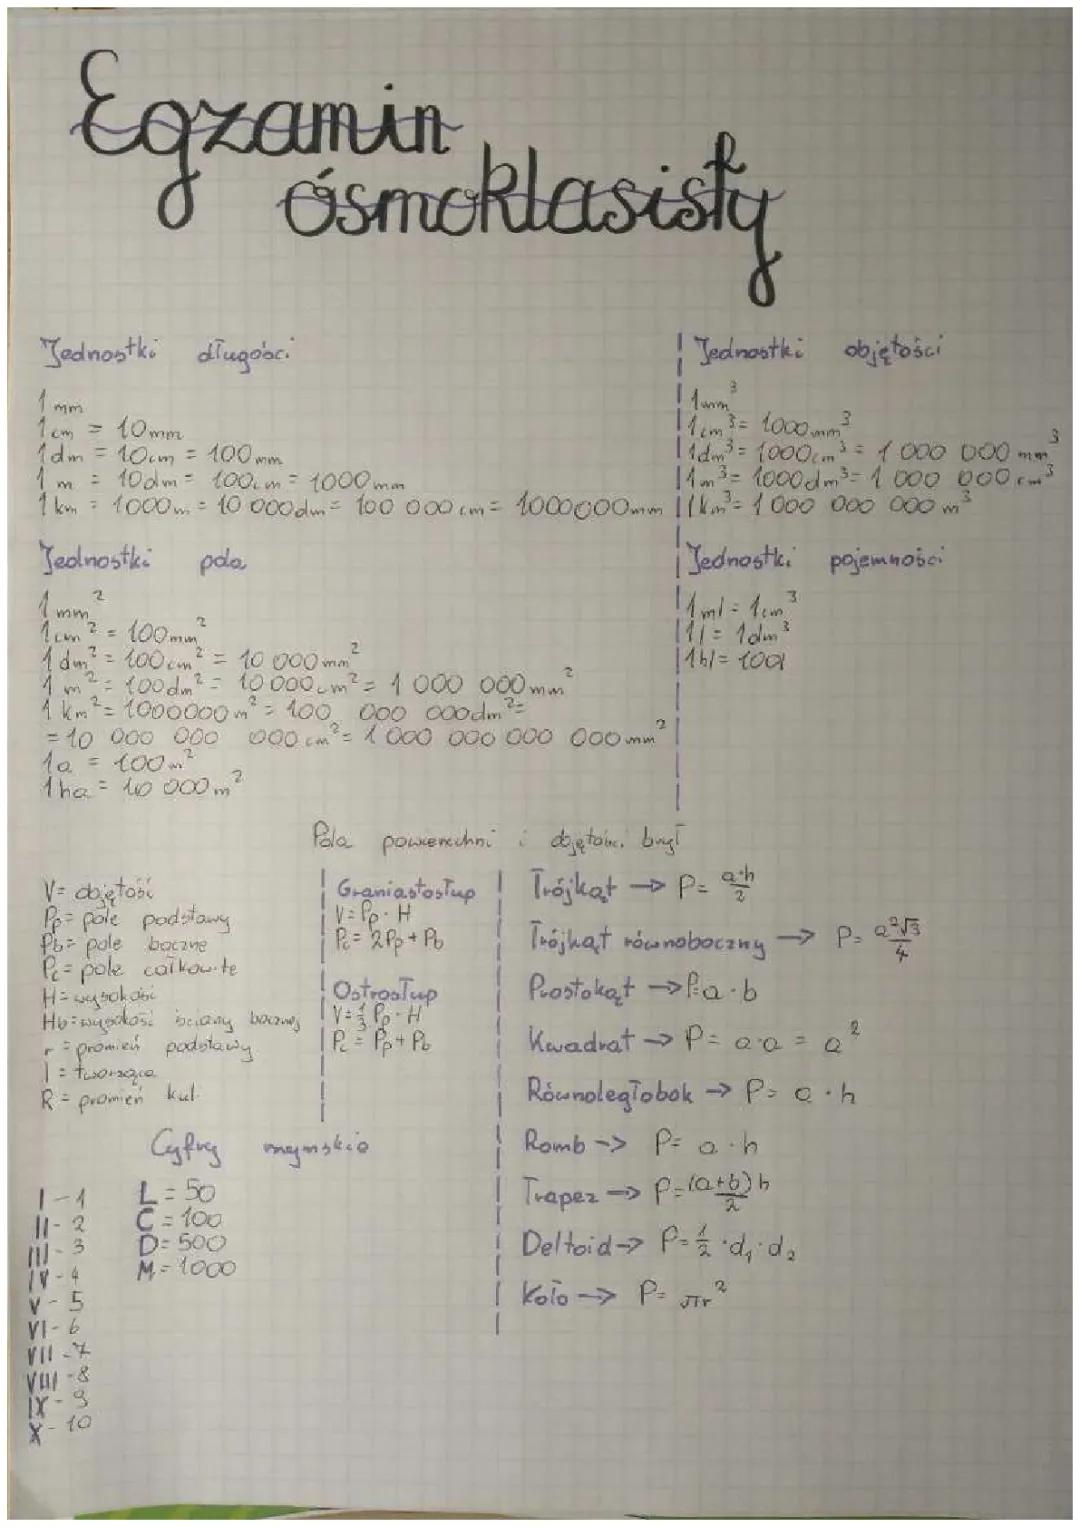 Egzamin
ósmoklasisty
Jednostki długości
1 mm
1 cm = 10 mm
1 dm = 10 cm = 100 mm
1 m = 10 dm = 100 cm = 1000 mm
1 km = 1000 m = 10 000 dm = 100 000 cm = 1000000 mm
Jednostki pola
1 mm²
1 cm² = 100 mm²
1 dm² = 100 cm² = 10 000 mm²
1 m² = 100 dm² = 10 000 cm² = 1 000 000 mm²
1 km² = 1000000 m² = 100 000 000 dm² =
= 10 000 000 000 cm² = 1 000 000 000 000 mm²
1a = 100 m²
1ha = 10 000 m²
Jednostki objętości
1 mm³
1 cm³ = 1000 mm³
1 dm³ = 1000 cm³ = 1 000 000 mm³
1 m³ = 1000 dm³ = 1 000 000 cm³
1 km³ = 1 000 000 000 m³
Jednostki pojemności
1 ml = 1 cm³
1 l = 1 dm³
1 hl = 100l
Pola powierzchni i objętości brył
V = objętość
Pp = pole podstawy
Pb = pole boczne
Pc = pole całkowite
H = wysokość
Hb = wysokość ściany bocznej
r = promień podstawy
l = tworząca
R = promień kuli
Graniastosłup
V = Pp · H
Pc = 2Pp + Pb
Ostrosłup
V = 1/3 Pp · H
Pc = Pp + Pb
Trójkąt → P = a·h/2
Trójkąt równoboczny → P = a²√3/4
Prostokąt → P = a · b
Kwadrat → P = a·a = a²
Równoległobok → P = a · h
Romb → P = a · h
Trapez → P = (a+b)h/2
Deltoid → P = 1/2 · d₁ · d₂
Koło → P = πr²
Cyfry rzymskie
I - 1
II - 2
III - 3
IV - 4
V - 5
VI - 6
VII - 7
VIII - 8
IX - 9
X - 10
L = 50
C = 100
D = 500
M = 1000